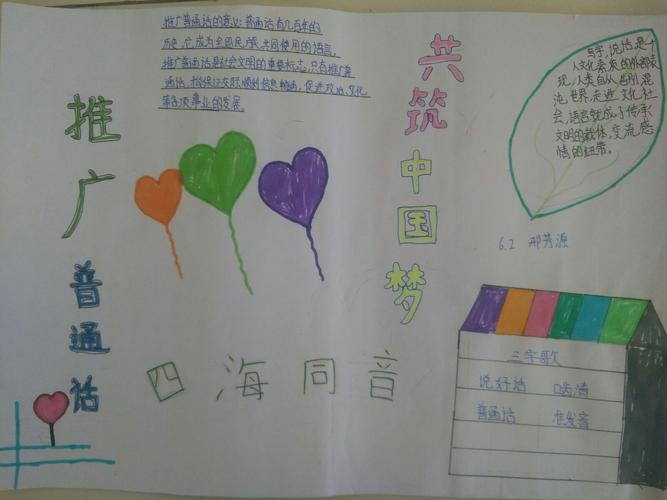 推广普通话的意义：普通话有几百年的
历史，它成为全国民族共同使用的语言。
推广普通话是社会文明的重要标志，只有推广普
通话，才能保证交际顺利信息畅通，促进政治、文化
等各项事业的发展。
推广普通话
共筑中国梦
写字，说话是一个
人文化素质的外部表
现，人类自从告别混
沌世界，走进文化社
会，语言就成了传承
文明的载体，交流感
情的纽带。
6.2 邢芳源
四海同音
三字歌
说好话 咬清
普通话 准发音